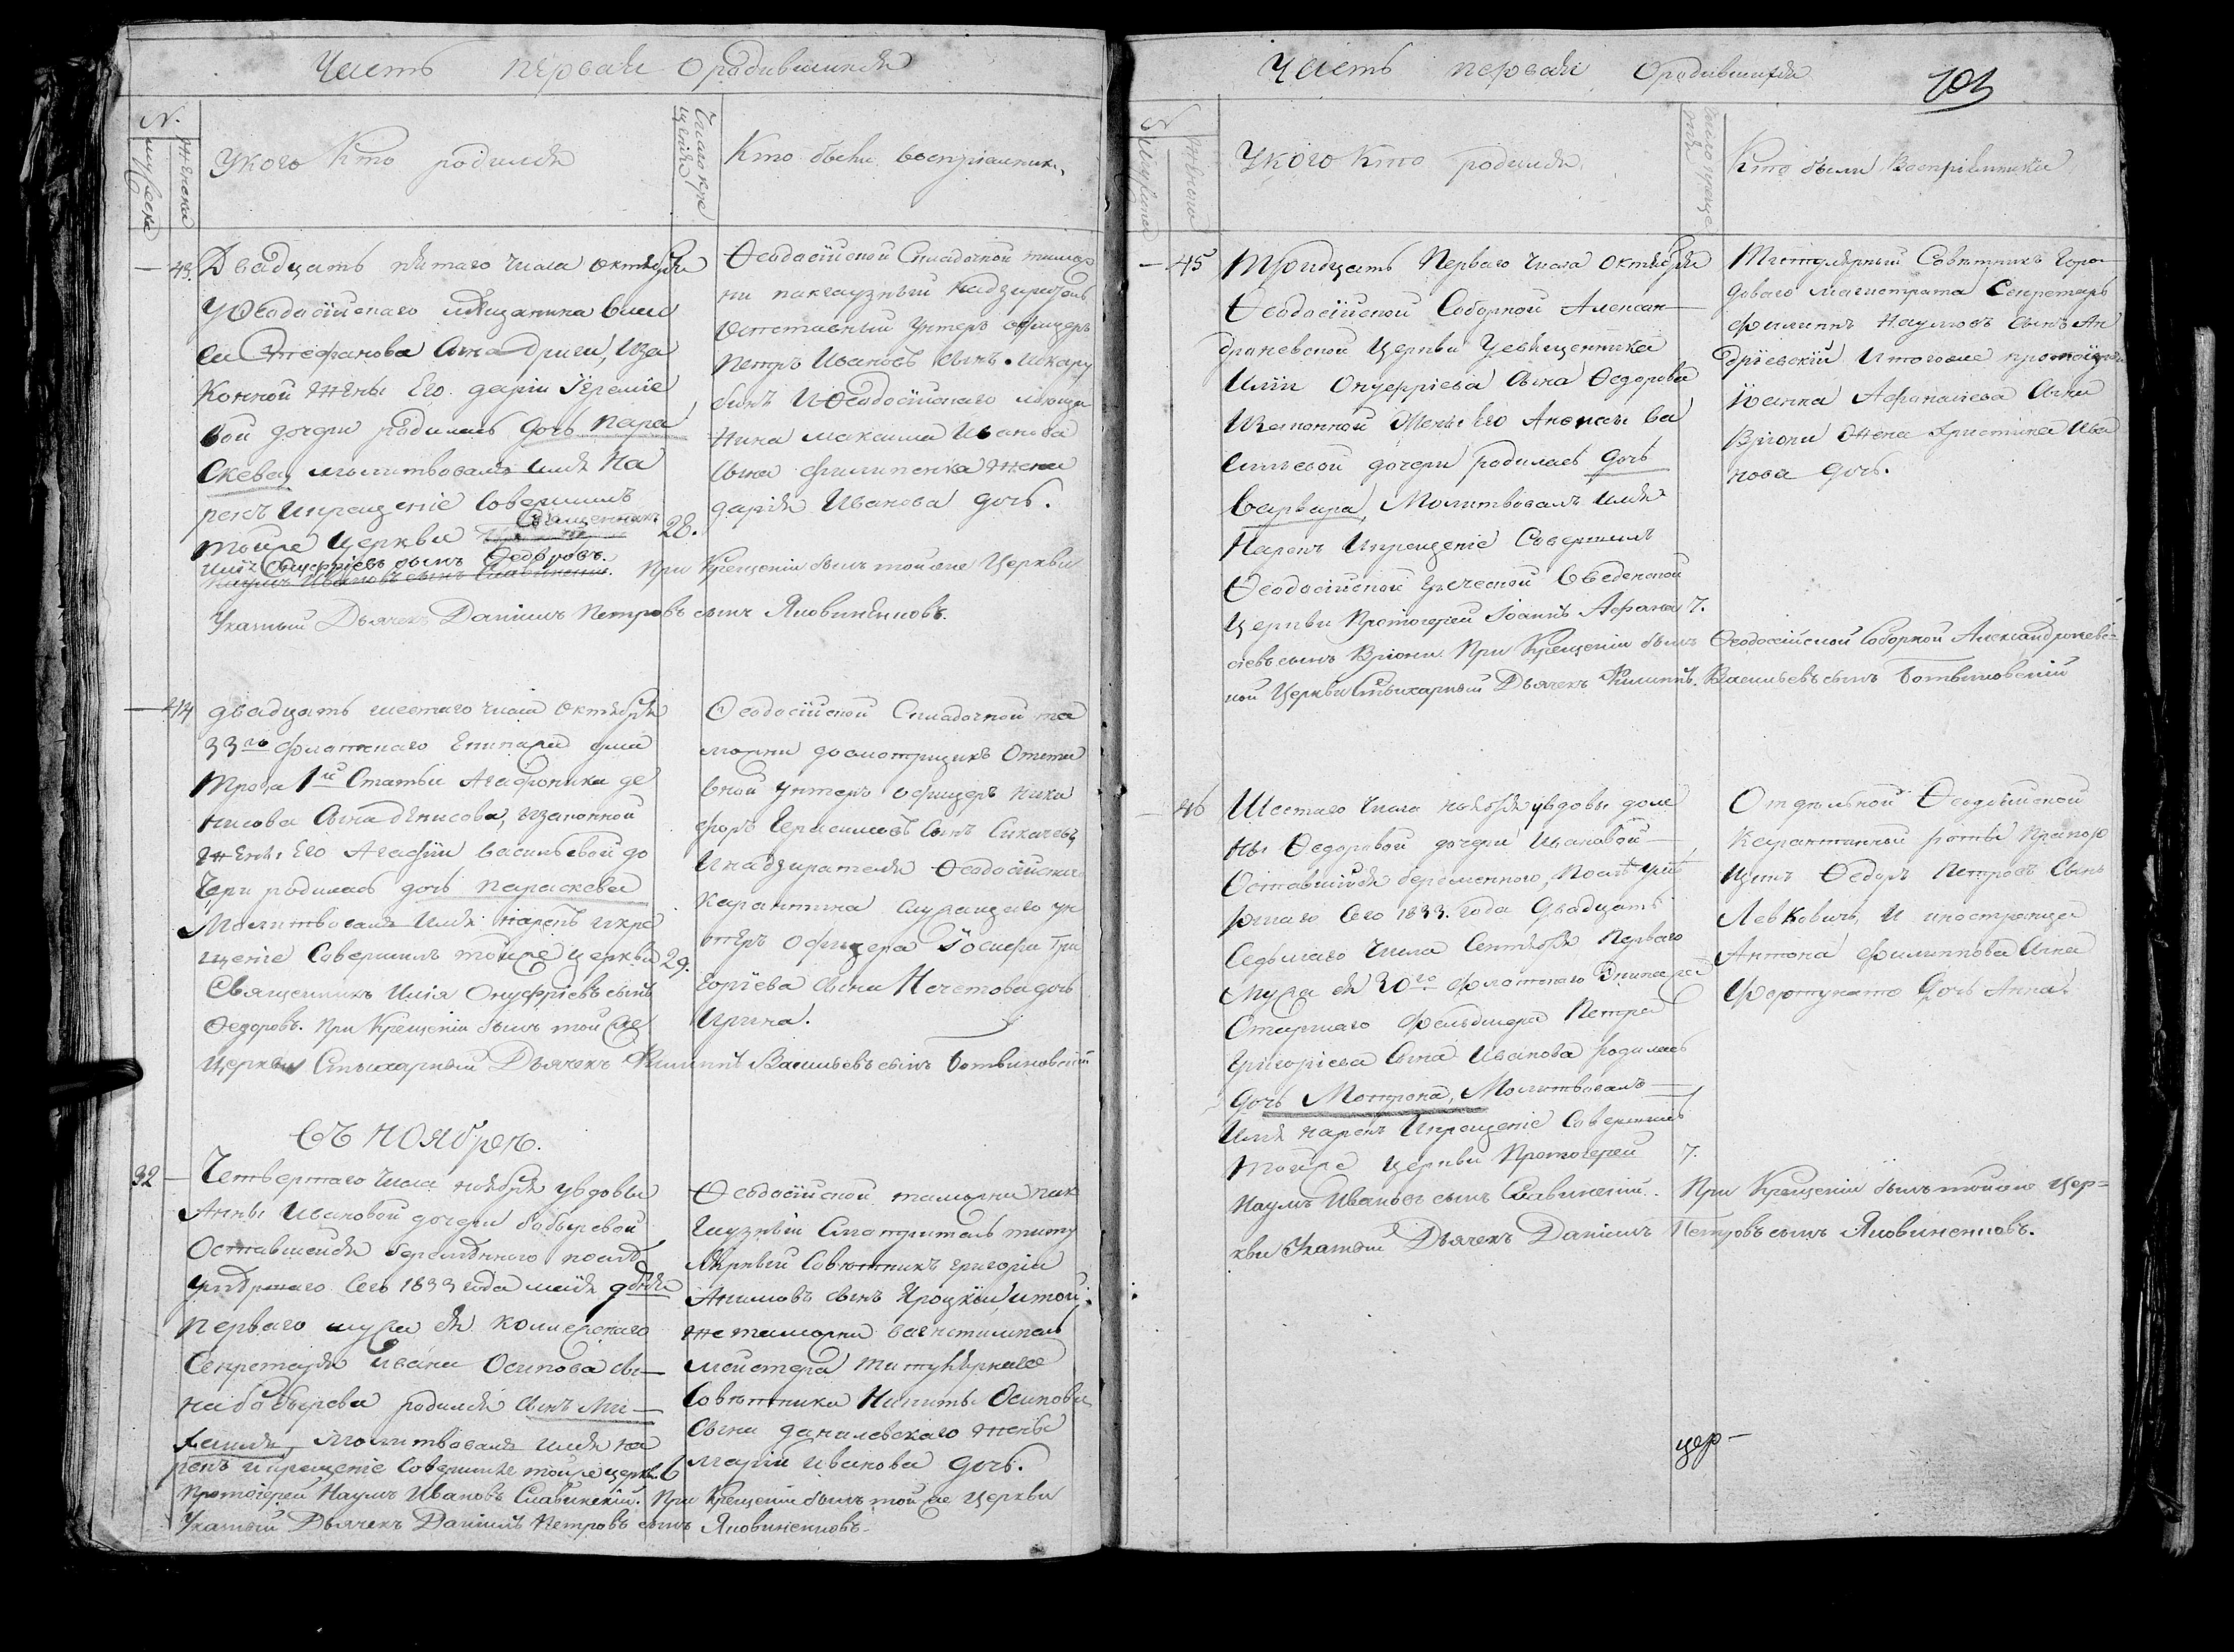 Часть первая о родившихся
N.
мужеска
женска
У кого кто родился
Число кре
щенія
Кто были воспріемники
43.
Двадцать пятаго числа октября
У Ѳеодосійскаго мѣщанина Васи
ли Стефанова сына Дриги, иза
конной жены Его Даріи Іереміе
вой дочери родилась дочь Пара
скева, молитвовалъ имя на
рекъ икрещеніе совершилъ
тойже Церкви Священникъ
Илія Онуфріевъ сынъ Ѳедоровъ.
Наумъ Ивановъ сынъ Славинскій.
28.
При Крещеніи былъ тойже Церкви
Указный Дьячекъ Даніилъ Петровъ сынъ Яновиченковъ.
Ѳеодосійской Складочной тамож
ни пакгаузный Надзиратель
отставный унтеръ офицеръ
Петръ Ивановъ сынъ
бинъ И Ѳеодосійскаго мѣща
нина Максима Иванова
сына Филипенка жена
Дарія Иванова дочь.
44
двадцать шестаго числа октября
33го флотскаго Екипажа
1й Статьи Агафоника Де
нисова сына Денисова, изаконной
жены Его Агафіи Васильевой до
чери родилась дочь Параскева
Молитвовалъ имя нарекъ икре
щеніе совершилъ тойже церкви
Священникъ Илія Онуфріевъ сынъ
Ѳедоровъ. При Крещеніи былъ тойже
Церкви Стихарный Дьячекъ Филиппъ Васильевъ сынъ Ботвиновскій
29.
Ѳеодосійской Складочной та
можни досмотрщикъ Отста
вной унтеръ офицеръ Ники
форъ Герасимовъ сынъ
Инадзирателя Ѳеодосійскаго
Карантина служащаго ун
теръ офицера Іосифа Гри
горіева сына Нечетова дочь
Ирина.
Въ Ноябрѣ.
32
Четвертаго числа ноября увдовы
Анны Ивановой дочери Бабыревой
Оставшейся беременного послѣ
умершаго сего 1833 года маія
перваго мужа ея коллежскаго
Секретаря Ивана Осипова сы
на Бабырева родился сынъ Ми
хаилъ, молитвовалъ имя на
рекъ икрещеніе совершилъ тойже церкв.
Протоіерей Наумъ Ивановъ Славинскій.
6
При Крещеніи былъ тойже Церкви
Указный Дьячекъ Даніилъ Петровъ сынъ Яновиченковъ.
Ѳеодосійской таможни пак
гаузный Смотритель титу
лярный Совѣтникъ Григорій
Акимовъ сынъ Яроцкій, итой
же таможни вагенштемпель
мейстера титулярнаго
Совѣтника Никиты Осипова
сына Данилевскаго жена
Марія Иванова дочь.
Часть первая о родившихся
101
N
Мужеска
Женска
У кого кто родился
Число креще
нія
Кто были Воспріемники
45
Тридцать Перваго числа октября
Ѳеодосійской Соборной Алексан
дроневской Церкви Усвященника
Иліи Онуфріева сына Ѳедорова
Изаконной жены Его Ва
силіевой дочери родилась дочь
Варвара, Молитвовалъ имя
Нарекъ Икрещеніе Совершилъ
Ѳеодосійской Греческой Введенской
Церкви Протоіерей Іоаннъ Афанас
іевъ сынъ Вріони. При Крещеніи былъ Ѳеодосійской Соборной Александроневс=
кой Церкви Стихарный Дьячекъ Филиппъ Васильевъ сынъ Ботвиновскій
7.
Титулярный Совѣтникъ Горо
доваго магистрата Секретарь
Филиппъ Наумовъ сынъ Ан
дріевскій Итогоже протоіерея
Іоанна Афанасіева сына
Вріони жена Христина Ива
нова дочь.
46
Шестаго числа ноября увдовы дом
ны Ѳедоровой дочери Ивановой
Оставшійся беременного, послѣ уме
ршаго сего 1833. года двадцать
седьмаго числа Сентября перваго
Мужа ея 30го Флотскаго Экипажа
Старшаго Фельдшера Петра
Григоріева сына Иванова родилась
дочь Матрона, Молитвовалъ
Имя нарекъ Икрещеніе Совершилъ
тойже церкви Протоіерей
Наумъ Ивановъ сынъ Славинскій.
7.
При Крещеніи былъ тойже Цер=
кви Указный Дьячекъ Даніилъ Петровъ сынъ Яновиченковъ.
Отдѣльной Ѳеодосійской
Карантинной роты Прапор
щикъ Ѳедоръ Петровъ сынъ
Левковичъ, И иностранца
Антона Филиппова сына
Фортунато дочь Анна.
цер-